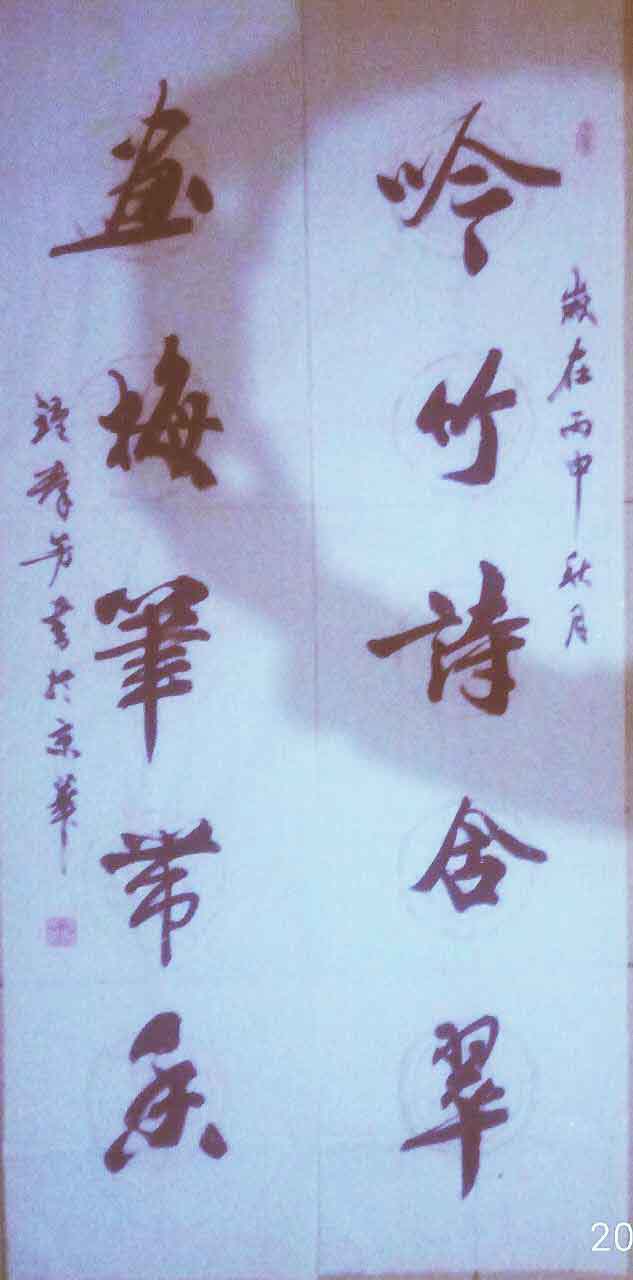 歲在丙申秋月
吟竹詩含翠
畫梅筆帶香
書於京華
20